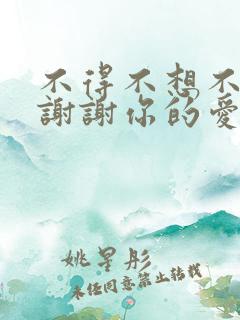 不得不想不
謝謝你的愛
姚星彤
未经同意禁止转载